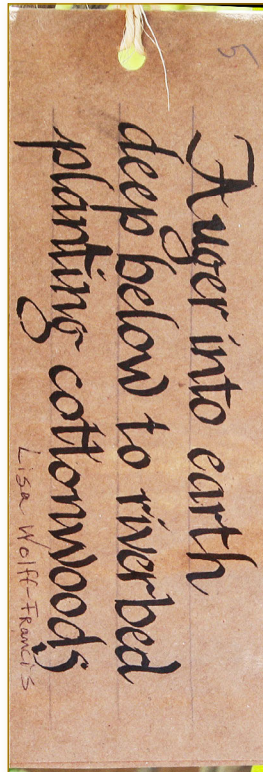 5
Auger into earth
deep below to riverbed
planting cottonwoods
Lisa Wolff-Francis